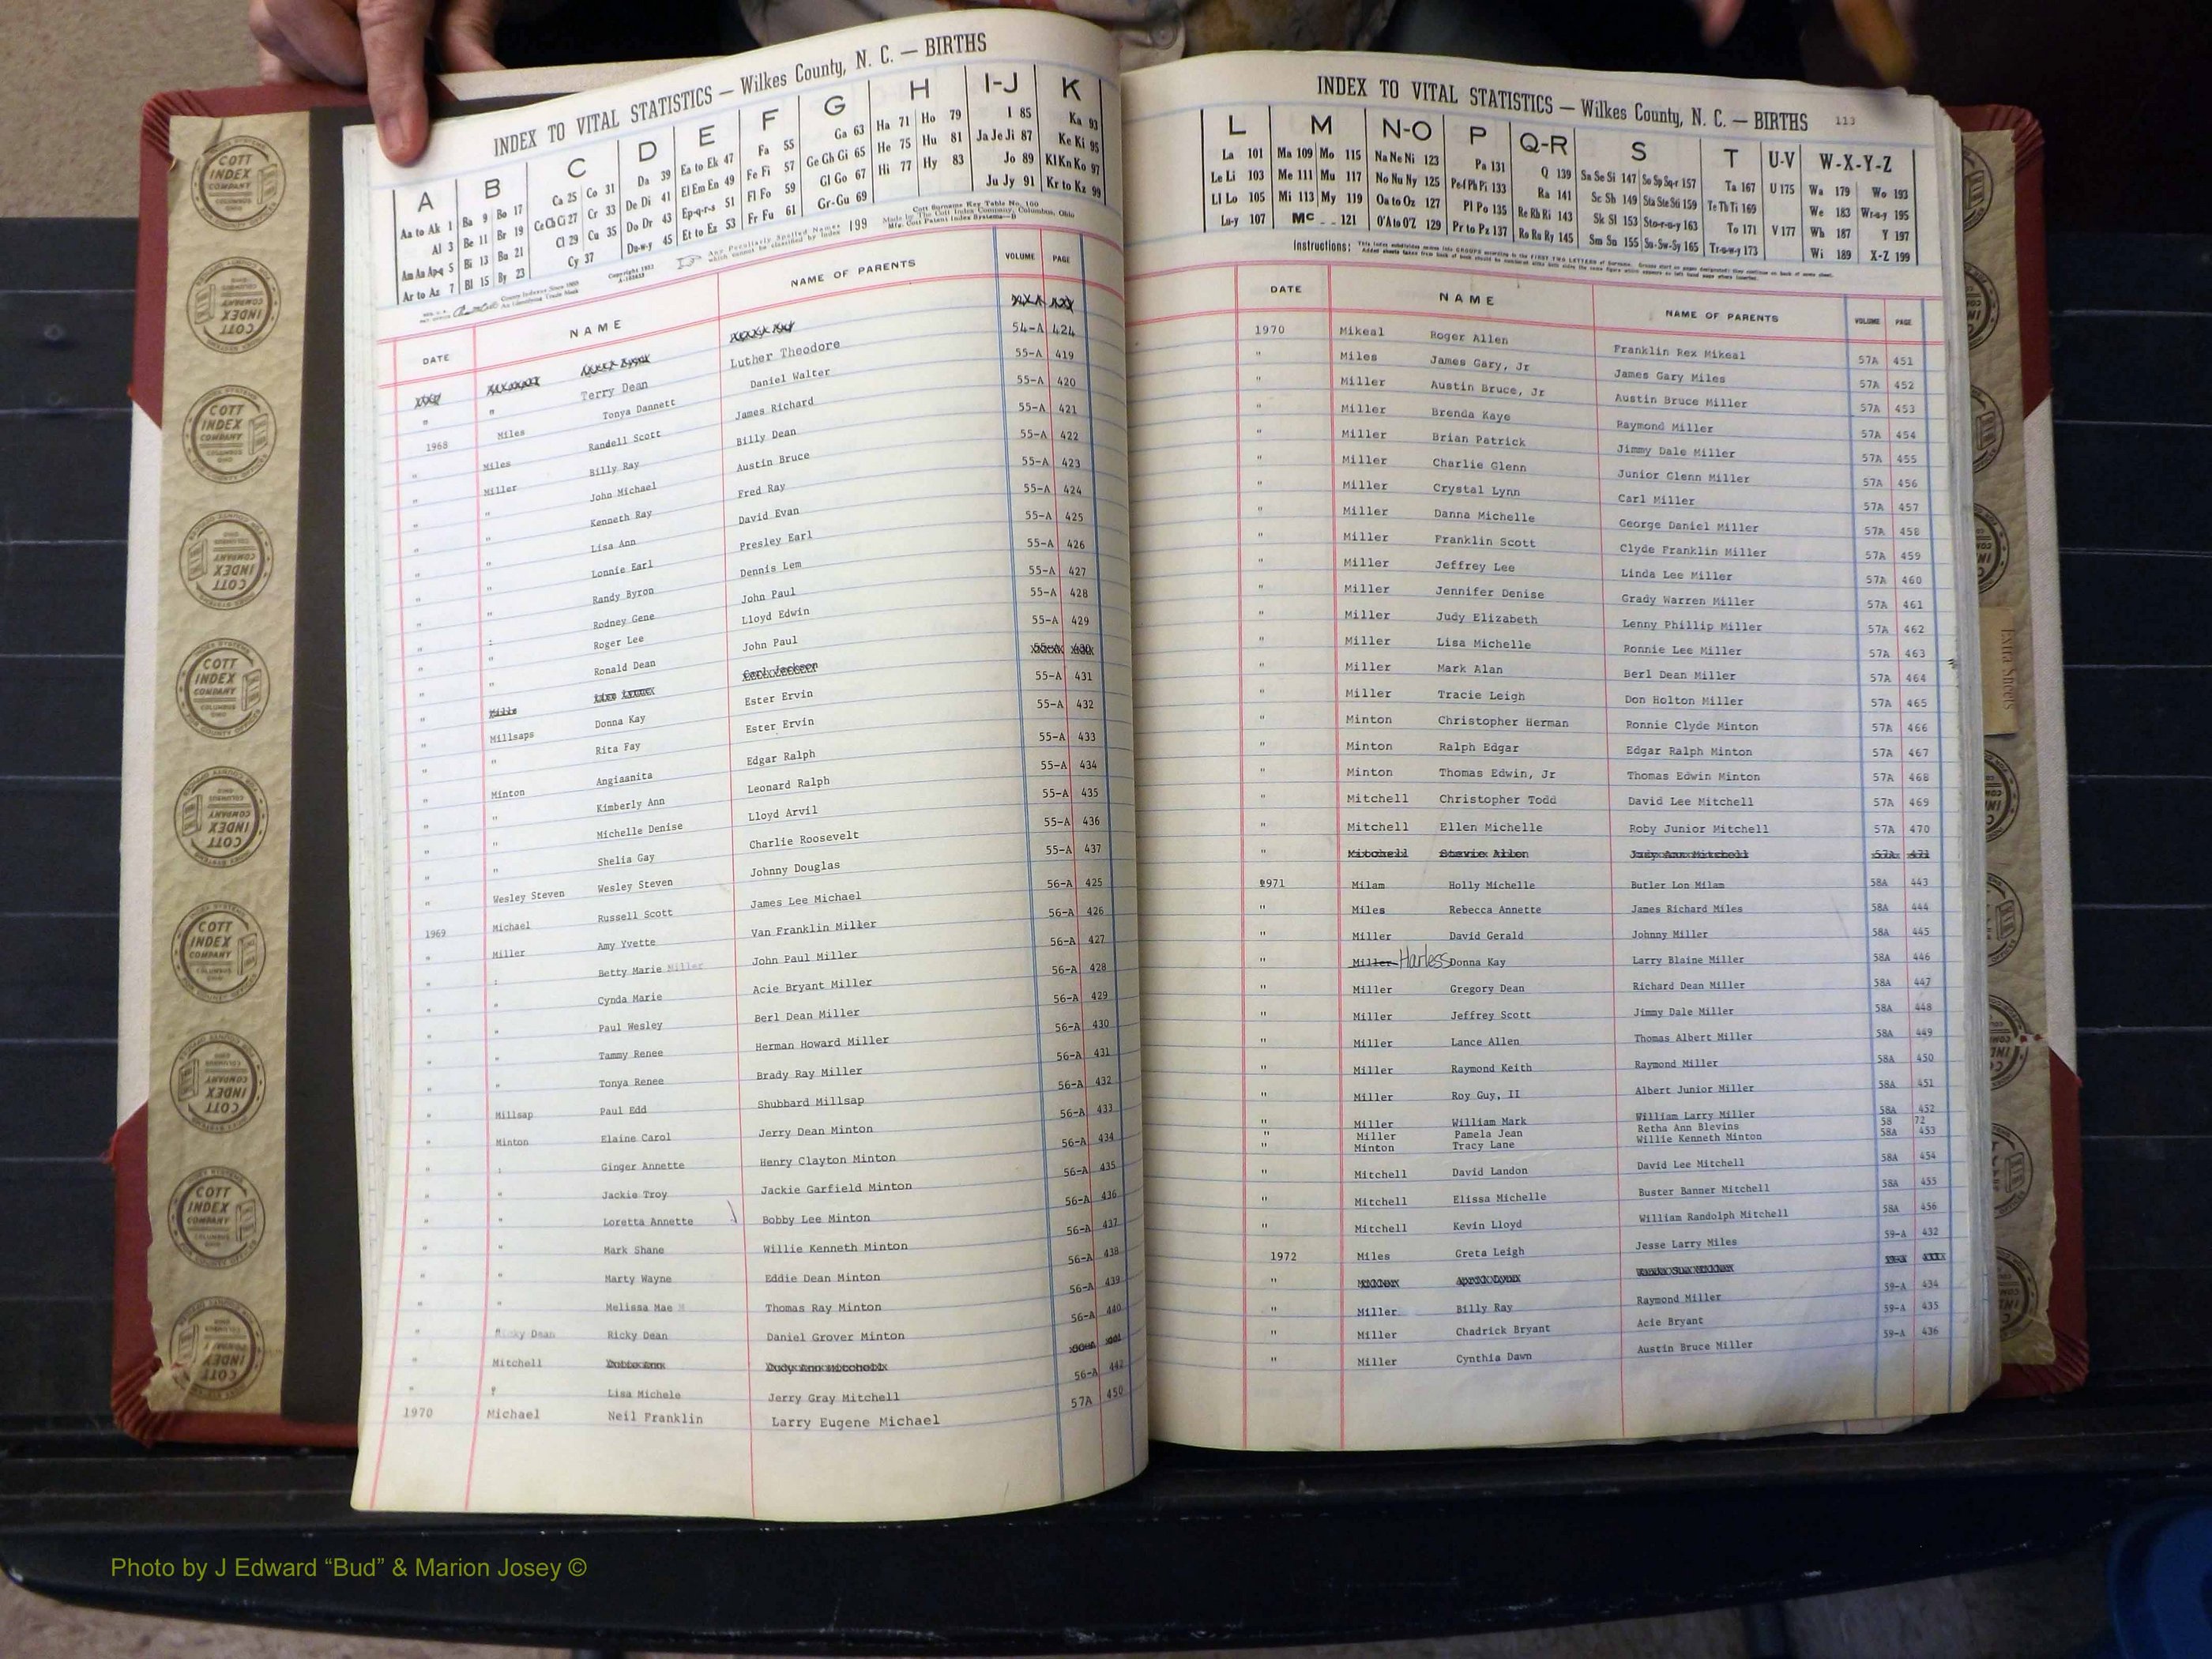 INDEX TO VITAL STATISTICS — Wilkes County, N. C. — BIRTHS
A B C D E F G H I-J K
Aa to Ak 1 Ba 9 Bo 17 Ca 25 Co 31 Da 39 Ea to Ek 47 Fa 55 Ga 63 Ha 71 Ho 79 I 85 Ka 93
Al 3 Be 11 Br 19 Ce Ch Ci 27 Cr 33 De Di 41 El Em En 49 Fe Fi 57 Ge Gh Gi 65 He 75 Hu 81 Ja Je Ji 87 Ke Ki 95
Am An Ap-q 5 Bi 13 Bu 21 Cl 29 Cu 35 Do Dr 43 Ep-q-r-s 51 Fl Fo 59 Gl Go 67 Hi 77 Hy 83 Jo 89 Kl Kn Ko 97
Ar to Az 7 Bl 15 By 23 Cy 37 Du-w-y 45 Et to Ez 53 Fr Fu 61 Gr-Gu 69 Ju Jy 91 Kr to Kz 99
Any Peculiarly Spelled Names which cannot be classified by index 199
Cott Surname Key Table No. 100
Made by The Cott Index Company, Columbus, Ohio
DATE NAME NAME OF PARENTS VOLUME PAGE
" " Terry Dean Luther Theodore 54-A 424
1968 Miles Tonya Dannett Daniel Walter 55-A 419
" Miles Randell Scott James Richard 55-A 420
" Miller Billy Ray Billy Dean 55-A 421
" " John Michael Austin Bruce 55-A 422
" " Kenneth Ray Fred Ray 55-A 423
" " Lisa Ann David Evan 55-A 424
" " Lonnie Earl Presley Earl 55-A 425
" " Randy Byron Dennis Lem 55-A 426
" : Rodney Gene John Paul 55-A 427
" " Roger Lee Lloyd Edwin 55-A 428
" " Ronald Dean John Paul 55-A 429
" Millsaps Donna Kay Ester Ervin 55-A 431
" " Rita Fay Ester Ervin 55-A 432
" Minton Angiaanita Edgar Ralph 55-A 433
" " Kimberly Ann Leonard Ralph 55-A 434
" " Michelle Denise Lloyd Arvil 55-A 435
" " Shelia Gay Charlie Roosevelt 55-A 436
" Wesley Steven Wesley Steven Johnny Douglas 55-A 437
1969 Michael Russell Scott James Lee Michael 56-A 425
" Miller Amy Yvette Van Franklin Miller 56-A 426
" : Betty Marie Miller John Paul Miller 56-A 427
" " Cynda Marie Acie Bryant Miller 56-A 428
" " Paul Wesley Berl Dean Miller 56-A 429
" " Tammy Renee Herman Howard Miller 56-A 430
" " Tonya Renee Brady Ray Miller 56-A 431
" Millsap Paul Edd Shubbard Millsap 56-A 432
" Minton Elaine Carol Jerry Dean Minton 56-A 433
" : Ginger Annette Henry Clayton Minton 56-A 434
" " Jackie Troy Jackie Garfield Minton 56-A 435
" " Loretta Annette Bobby Lee Minton 56-A 436
" " Mark Shane Willie Kenneth Minton 56-A 437
" " Marty Wayne Eddie Dean Minton 56-A 438
" " Melissa Mae Thomas Ray Minton 56-A 439
" Ricky Dean Ricky Dean Daniel Grover Minton 56-A 440
" Mitchell
" " Lisa Michele Jerry Gray Mitchell 56-A 442
1970 Michael Neil Franklin Larry Eugene Michael 57A 450
INDEX TO VITAL STATISTICS — Wilkes County, N. C. — BIRTHS 113
L M N-O P Q-R S T U-V W-X-Y-Z
La 101 Ma 109 Mo 115 Na Ne Ni 123 Pa 131 Q 139 Sa Se Si 147 So Sp Sq-r 157 Ta 167 U 175 Wa 179 Wo 193
Le Li 103 Me 111 Mu 117 No Nu Ny 125 Pe-f Ph Pi 133 Ra 141 Sc Sh 149 Sta Ste Sti 159 Te Th Ti 169 We 183 Wr-u-y 195
Ll Lo 105 Mi 113 My 119 Oa to Oz 127 Pl Po 135 Re Rh Ri 143 Sk Sl 153 Sto-r-u-y 163 To 171 V 177 Wh 187 Y 197
Lu-y 107 Mc 121 O'A to O'Z 129 Pr to Pz 137 Ro Ru Ry 145 Sm Sn 155 Su-Sw-Sy 165 Tr-u-w-y 173 Wi 189 X-Z 199
Instructions:
DATE NAME NAME OF PARENTS VOLUME PAGE
1970 Mikeal Roger Allen Franklin Rex Mikeal 57A 451
" Miles James Gary, Jr James Gary Miles 57A 452
" Miller Austin Bruce, Jr Austin Bruce Miller 57A 453
" Miller Brenda Kaye Raymond Miller 57A 454
" Miller Brian Patrick Jimmy Dale Miller 57A 455
" Miller Charlie Glenn Junior Glenn Miller 57A 456
" Miller Crystal Lynn Carl Miller 57A 457
" Miller Danna Michelle George Daniel Miller 57A 458
" Miller Franklin Scott Clyde Franklin Miller 57A 459
" Miller Jeffrey Lee Linda Lee Miller 57A 460
" Miller Jennifer Denise Grady Warren Miller 57A 461
" Miller Judy Elizabeth Lenny Phillip Miller 57A 462
" Miller Lisa Michelle Ronnie Lee Miller 57A 463
" Miller Mark Alan Berl Dean Miller 57A 464
" Miller Tracie Leigh Don Holton Miller 57A 465
" Minton Christopher Herman Ronnie Clyde Minton 57A 466
" Minton Ralph Edgar Edgar Ralph Minton 57A 467
" Minton Thomas Edwin, Jr Thomas Edwin Minton 57A 468
" Mitchell Christopher Todd David Lee Mitchell 57A 469
" Mitchell Ellen Michelle Roby Junior Mitchell 57A 470
" Mitchell Stevie Allen Judy Ann Mitchell 57A 471
1971 Milam Holly Michelle Butler Lon Milam 58A 443
" Miles Rebecca Annette James Richard Miles 58A 444
" Miller David Gerald Johnny Miller 58A 445
" Miller Harless Donna Kay Larry Blaine Miller 58A 446
" Miller Gregory Dean Richard Dean Miller 58A 447
" Miller Jeffrey Scott Jimmy Dale Miller 58A 448
" Miller Lance Allen Thomas Albert Miller 58A 449
" Miller Raymond Keith Raymond Miller 58A 450
" Miller Roy Guy, II Albert Junior Miller 58A 451
" Miller William Mark William Larry Miller 58A 452
" Miller Pamela Jean Retha Ann Blevins 58 72
" Minton Tracy Lane Willie Kenneth Minton 58A 453
" Mitchell David Landon David Lee Mitchell 58A 454
" Mitchell Elissa Michelle Buster Banner Mitchell 58A 455
" Mitchell Kevin Lloyd William Randolph Mitchell 58A 456
1972 Miles Greta Leigh Jesse Larry Miles 59-A 432
"
" Miller Billy Ray Raymond Miller 59-A 434
" Miller Chadrick Bryant Acie Bryant 59-A 435
" Miller Cynthia Dawn Austin Bruce Miller 59-A 436
Extra Sheets
COTT INDEX COMPANY COLUMBUS OHIO
Photo by J Edward “Bud” & Marion Josey ©